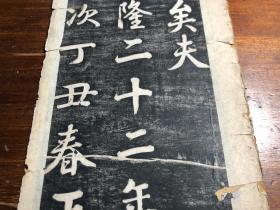 矣夫
隆二十二年
次丁丑春正